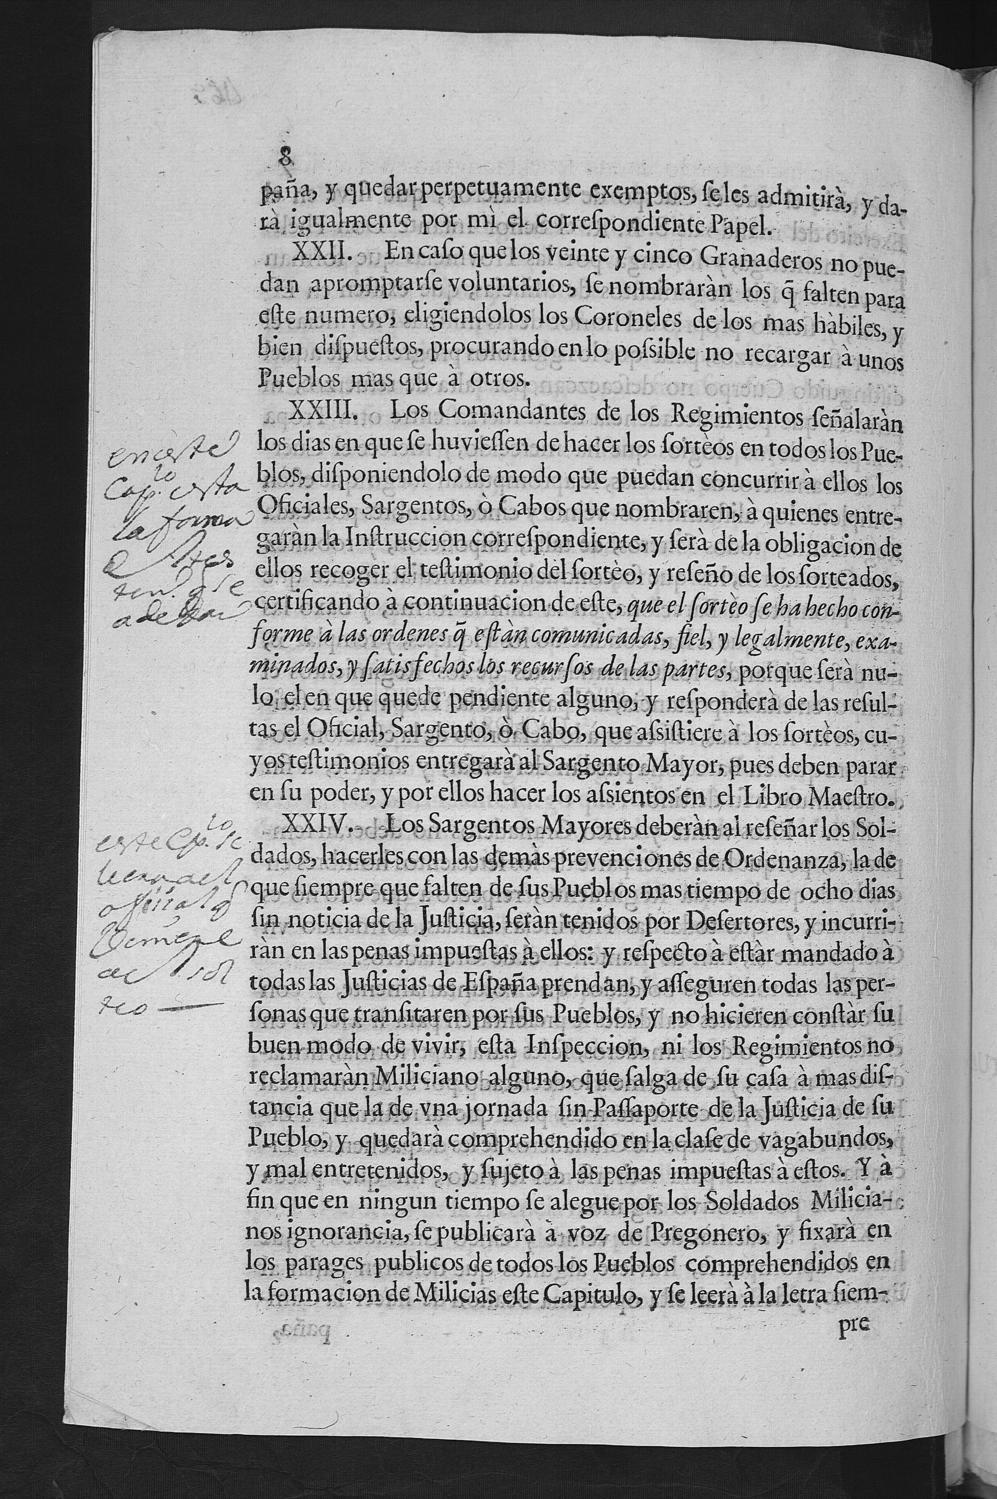 8
paña, y quedar perpetuamente exemptos, ſe les admitirà, y da-
rà igualmente por mì el correſpondiente Papel.
XXII. En caſo que los veinte y cinco Granaderos no pue-
dan apromptarſe voluntarios, ſe nombraràn los q̃ falten para
eſte numero, eligiendolos los Coroneles de los mas hàbiles, y
bien diſpueſtos, procurando en lo poſsible no recargar à unos
Pueblos mas que à otros.
XXIII. Los Comandantes de los Regimientos ſeñalaràn
los dias en que ſe huvieſſen de hacer los ſortèos en todos los Pue-
blos, diſponiendolo de modo que puedan concurrir à ellos los
Oficiales, Sargentos, ò Cabos que nombraren, à quienes entre-
garàn la Inſtruccion correſpondiente, y ſerà de la obligacion de
ellos recoger el teſtimonio del ſortèo, y reſeño de los ſorteados,
certificando à continuacion de eſte, que el ſortèo ſe ha hecho con-
forme à las ordenes q̃ eſtàn comunicadas, fiel, y legalmente, exa-
minados, y ſatisfechos los recurſos de las partes, porque ſerà nu-
lo el en que quede pendiente alguno, y reſponderà de las reſul-
tas el Oficial, Sargento, ò Cabo, que aſsiſtiere à los ſortèos, cu-
yos teſtimonios entregarà al Sargento Mayor, pues deben parar
en ſu poder, y por ellos hacer los aſsientos en el Libro Maeſtro.
XXIV. Los Sargentos Mayores deberàn al reſeñar los Sol-
dados, hacerles con las demàs prevenciones de Ordenanza, la de
que ſiempre que falten de ſus Pueblos mas tiempo de ocho dias
ſin noticia de la Juſticia, ſeràn tenidos por Deſertores, y incurri-
ràn en las penas impueſtas à ellos: y reſpecto à eſtàr mandado à
todas las Juſticias de Eſpaña prendan, y aſſeguren todas las per-
ſonas que tranſitaren por ſus Pueblos, y no hicieren conſtàr ſu
buen modo de vivir, eſta Inſpeccion, ni los Regimientos no
reclamaràn Miliciano alguno, que ſalga de ſu caſa à mas diſ-
tancia que la de vna jornada ſin Paſſaporte de la Juſticia de ſu
Pueblo, y quedarà comprehendido en la claſe de vagabundos,
y mal entretenidos, y ſujeto à las penas impueſtas à eſtos. Y à
fin que en ningun tiempo ſe alegue por los Soldados Milicia-
nos ignorancia, ſe publicarà à voz de Pregonero, y fixarà en
los parages publicos de todos los Pueblos comprehendidos en
la formacion de Milicias eſte Capitulo, y ſe leerà à la letra ſiem-
pre
en este
Cap.lo esta
la forma
este Cap.lo se